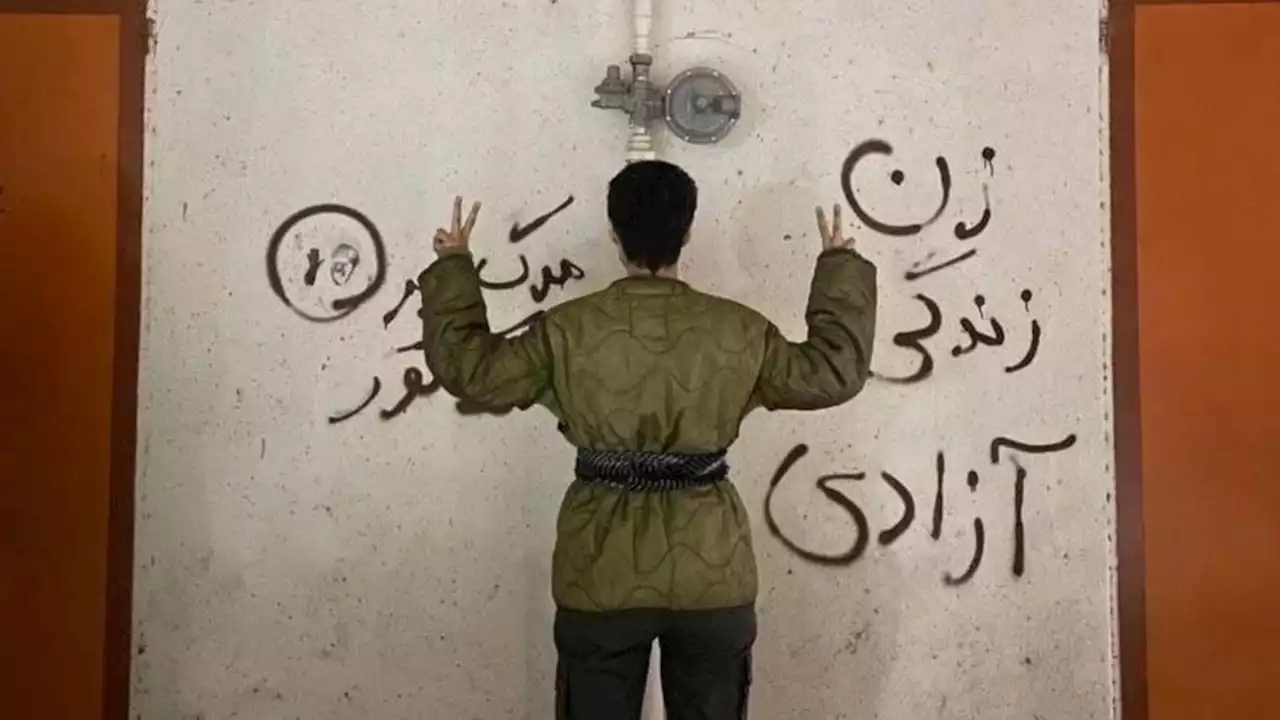 زن
زندگی
آزادی
مرگ بر